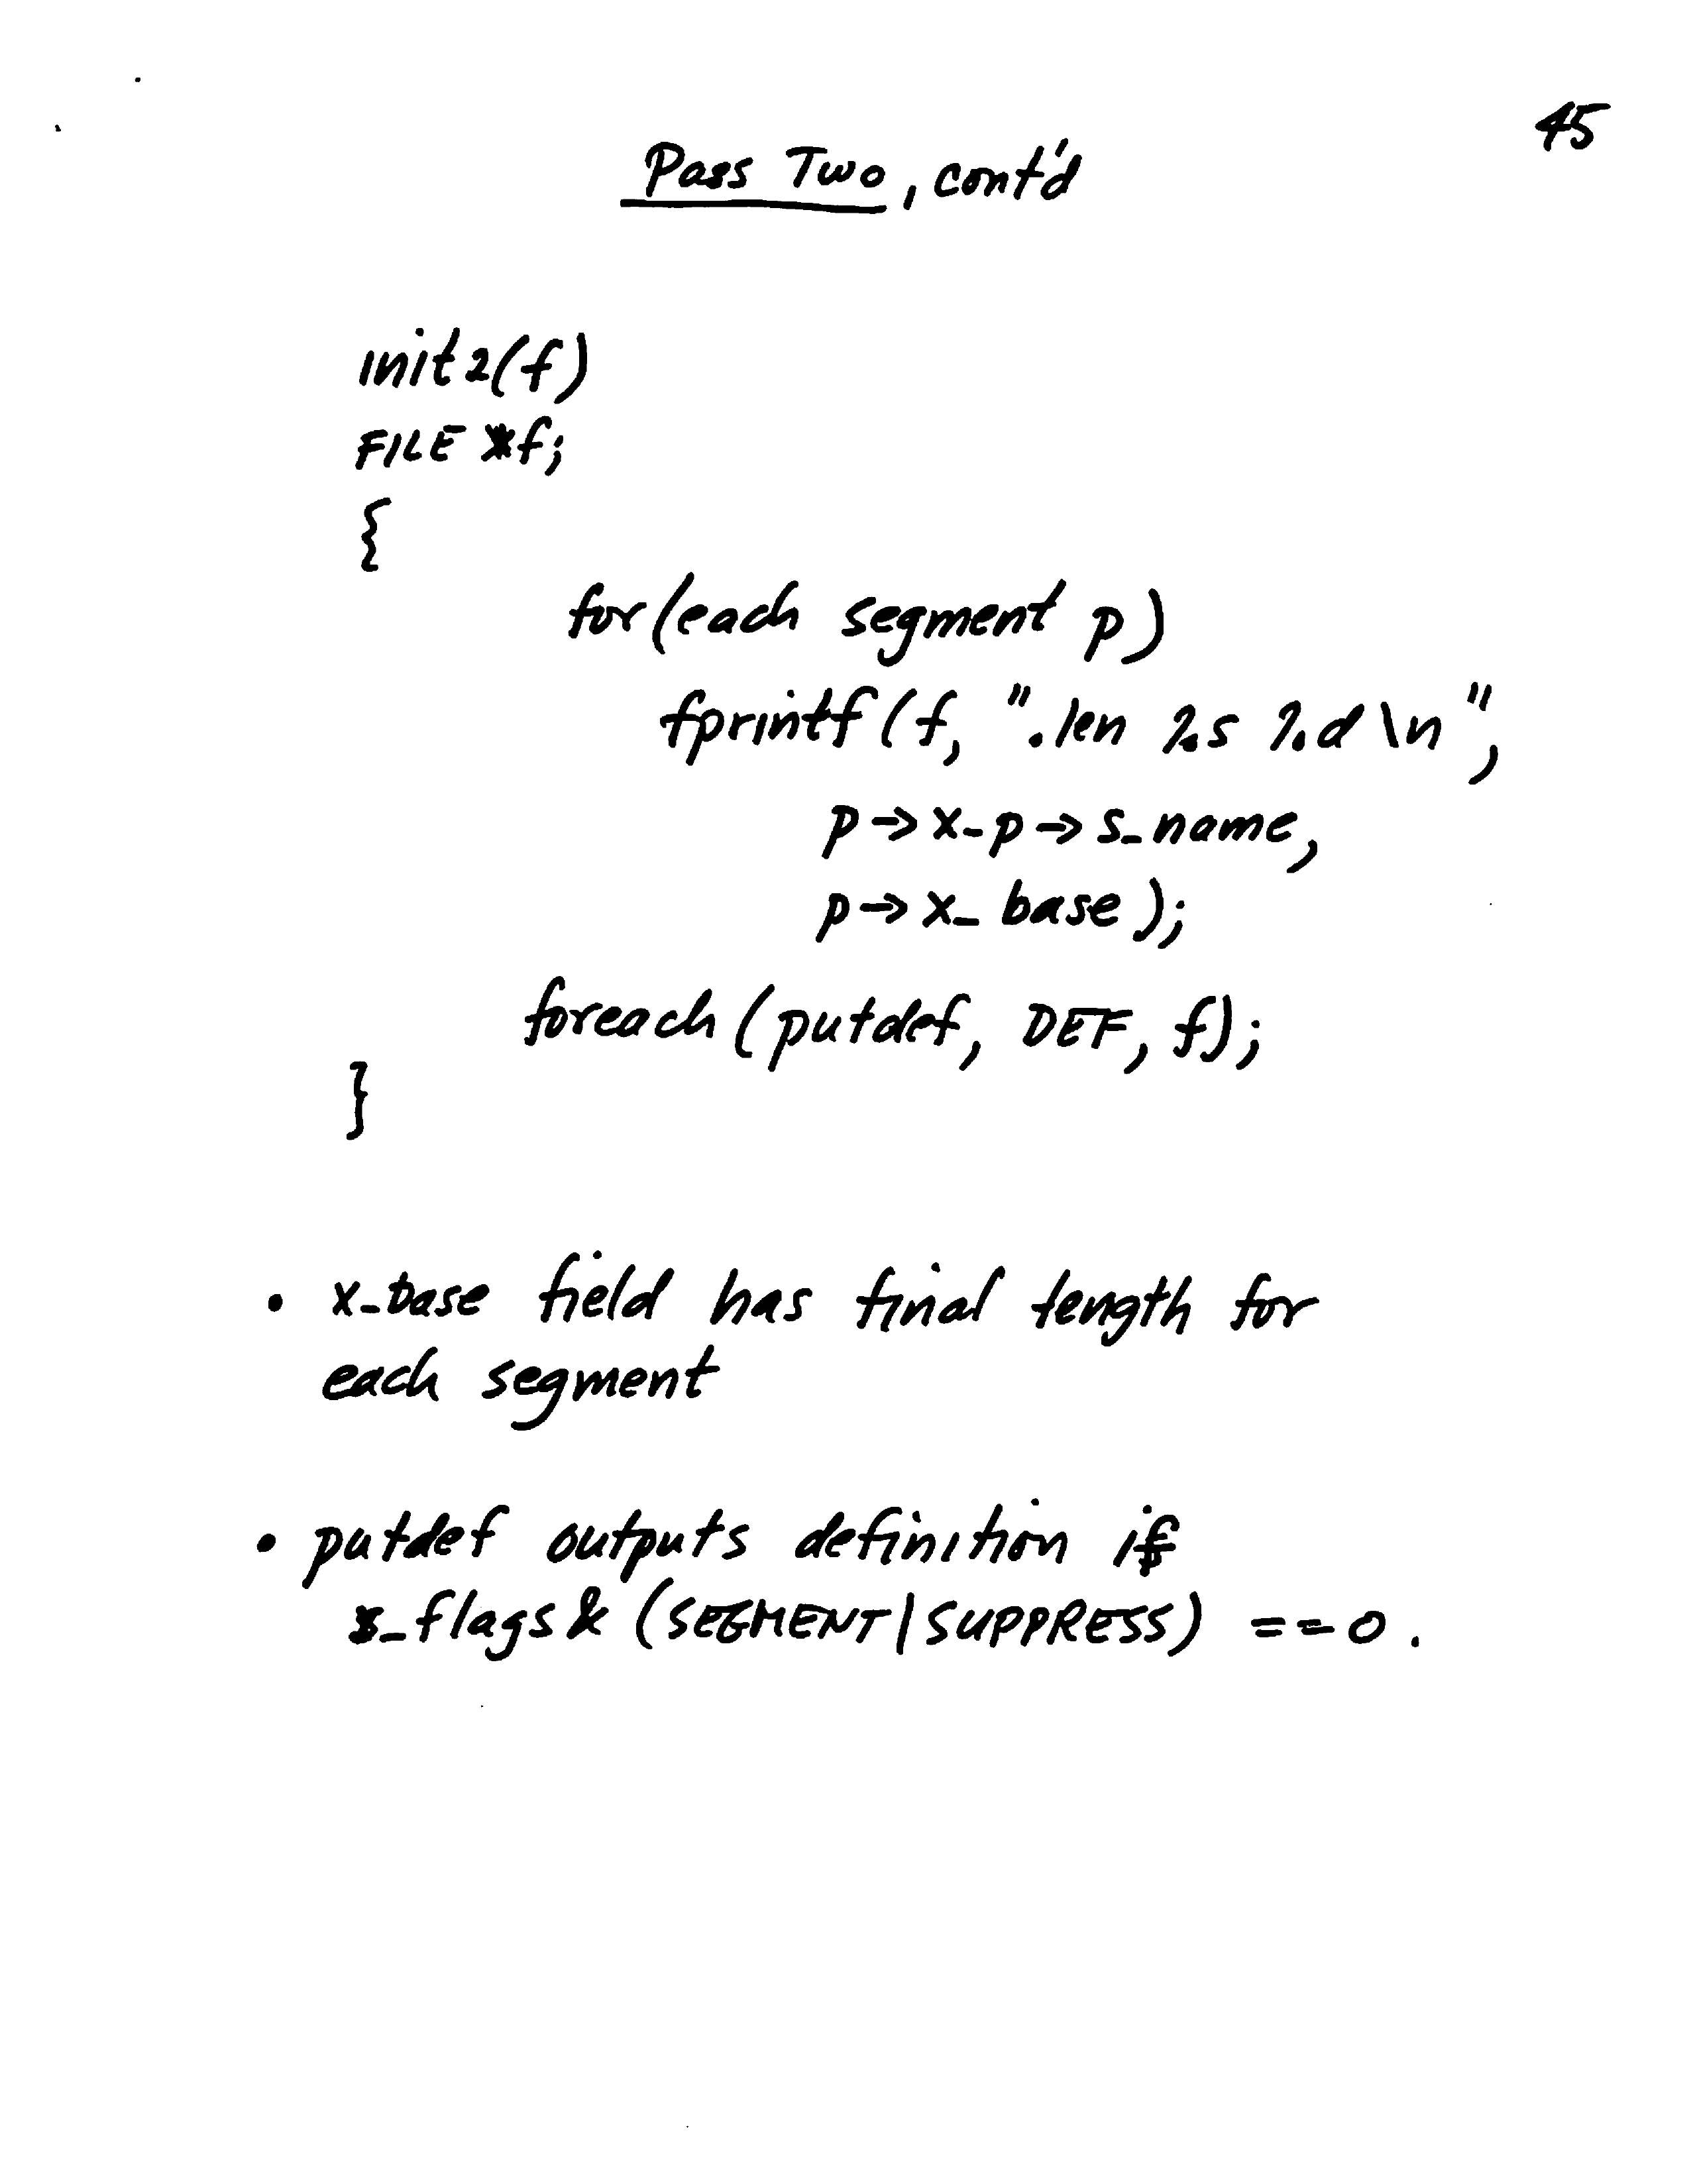 45
Pass Two, cont'd
init2(f)
FILE *f;
{
for(each segment p)
fprintf(f, ".len %s %d\n",
p->x_p->s_name,
p->x_base);
foreach(putdef, DEF, f);
}
• x_base field has final length for
each segment
• putdef outputs definition if
s_flags & (SEGMENT|SUPPRESS) == 0.